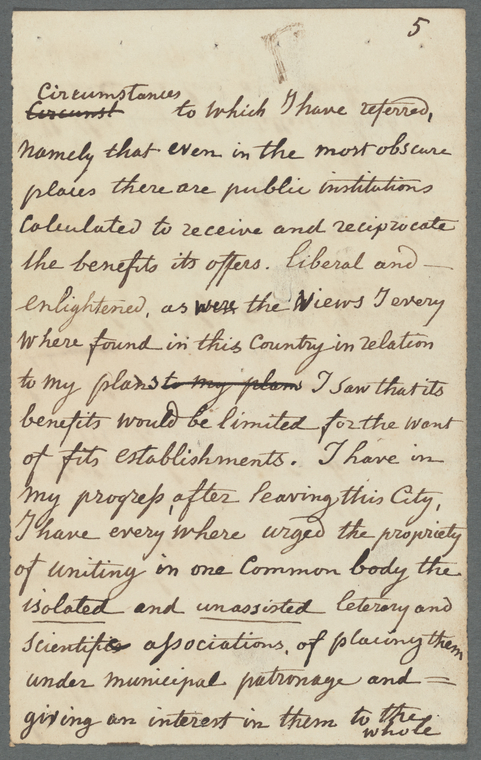 5
Circumstances
Circumst to which I have referred,
namely that even in the most obscure
places there are public institutions
calculated to receive and reciprocate
the benefits its offers. liberal and —
enlightened, as were the views I every
where found in this Country in relation
to my plans to my plans I saw that its
benefits would be limited for the want
of fits establishments. I have in
my progress, after leaving this City,
I have every where urged the propriety
of uniting in one Common body the
isolated and unassisted leterary and
scientific associations, of placing them
under municipal patronage and =
giving an interest in them to the
whole